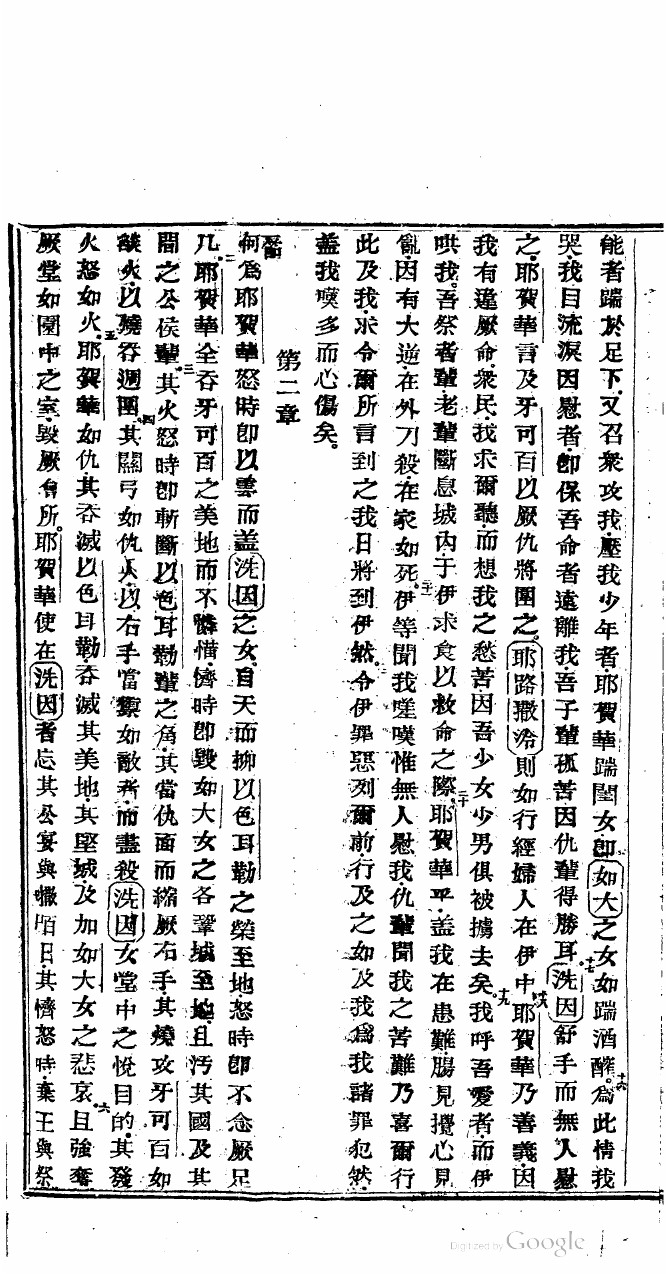 能者踹於足下又召衆攻我壓我少年者耶賀華踹閨女即如大之女如踹酒醡。十六爲此情我
哭我目流淚因慰者即保吾命者遠離我吾子輩孤苦因仇輩得勝耳十七洗因舒手而無人慰
之耶賀華言及牙可百以厥仇將圍之。耶路撒冷則如行經婦人在伊中十八耶賀華乃善義因
我有違厥命衆民我求爾聽而想我之愁苦因吾少女少男俱被擄去矣十九我呼吾愛者而伊
哄我。吾祭者輩老輩斷息城內于伊求食以救命之際二十耶賀華乎盖我在患難腸見攪心見
亂因有大逆在外刀殺在家如死二十一伊等聞我嗟嘆惟無人慰我仇輩聞我之苦難乃喜爾行
此及我求令爾所言到之我日將到伊然令伊罪惡列爾前行及之如及我爲我諸罪犯然
盖我嘆多而心傷矣。
第二章
何爲耶賀華怒時即以雲而盖洗因之女自天而擲以色耳勒之榮至地怒時即不念厥足
几二耶賀華全吞牙可百之美地而不憐惜儕時即毀如大女之各鞏城至地且污其國及其
間之公侯輩三其火怒時即斬斷以色耳勒輩之角其當仇面而縮厥右手其燒攻牙可百如
燄火以燒吞週圍四其關弓如仇人以右手當禦如敵者而盡殺洗因女堂中之悅目的其發
火怒如火五耶賀華如仇其吞滅以色耳勒吞滅其美地其堅城及加如大女之悲哀六且強奪
厥堂如園中之室毀厥會所。耶賀華使在洗因者忘其公宴與㘔咟日其儕怒時棄王與祭
Digitized by Google